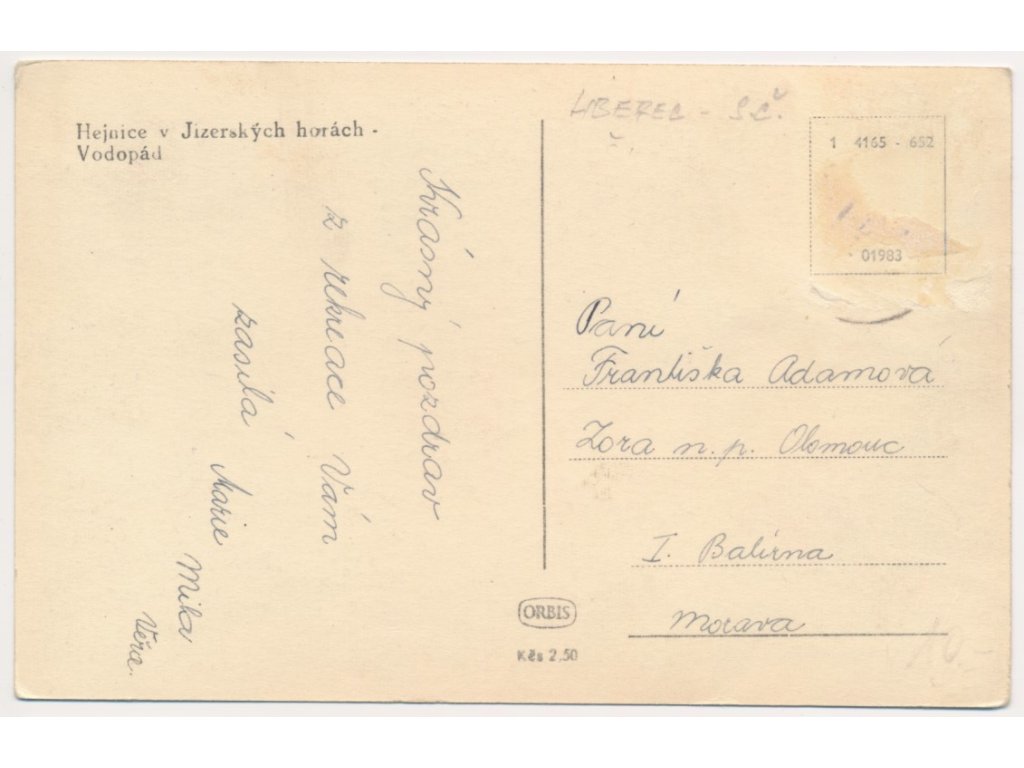 Hejnice v Jizerských horách -
Vodopád
Krásný pozdrav
z rekreace Vám
zasílá
Marie
Milka
Věra.
LIBEREC - SČ.
1 4165 - 652
01983
Paní
Františka Adamová
Zora n.p. Olomouc
I. Balírna
Morava
ORBIS
Kčs 2,50
10.-